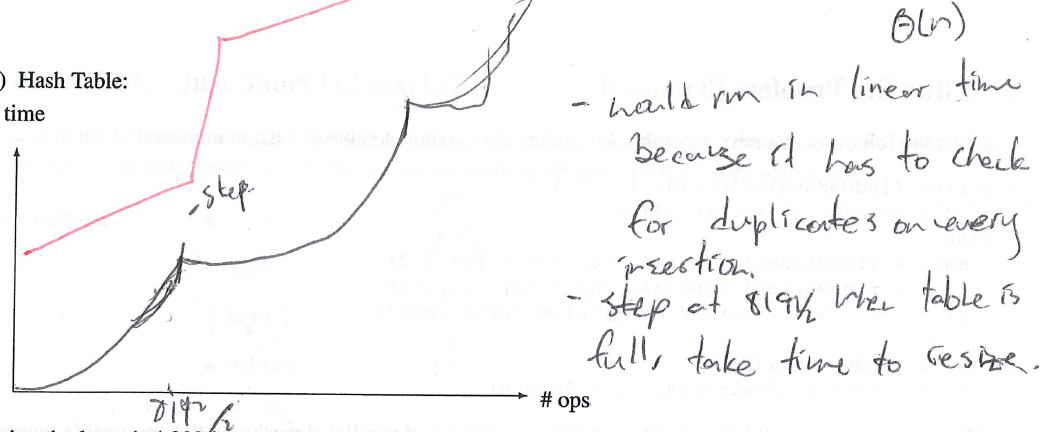 Θ(n)
) Hash Table:
time
- would run in linear time
because it has to check
for duplicates on every
insertion.
step
- step at 8192/2 when table is
full, take time to resize.
# ops
8192/2